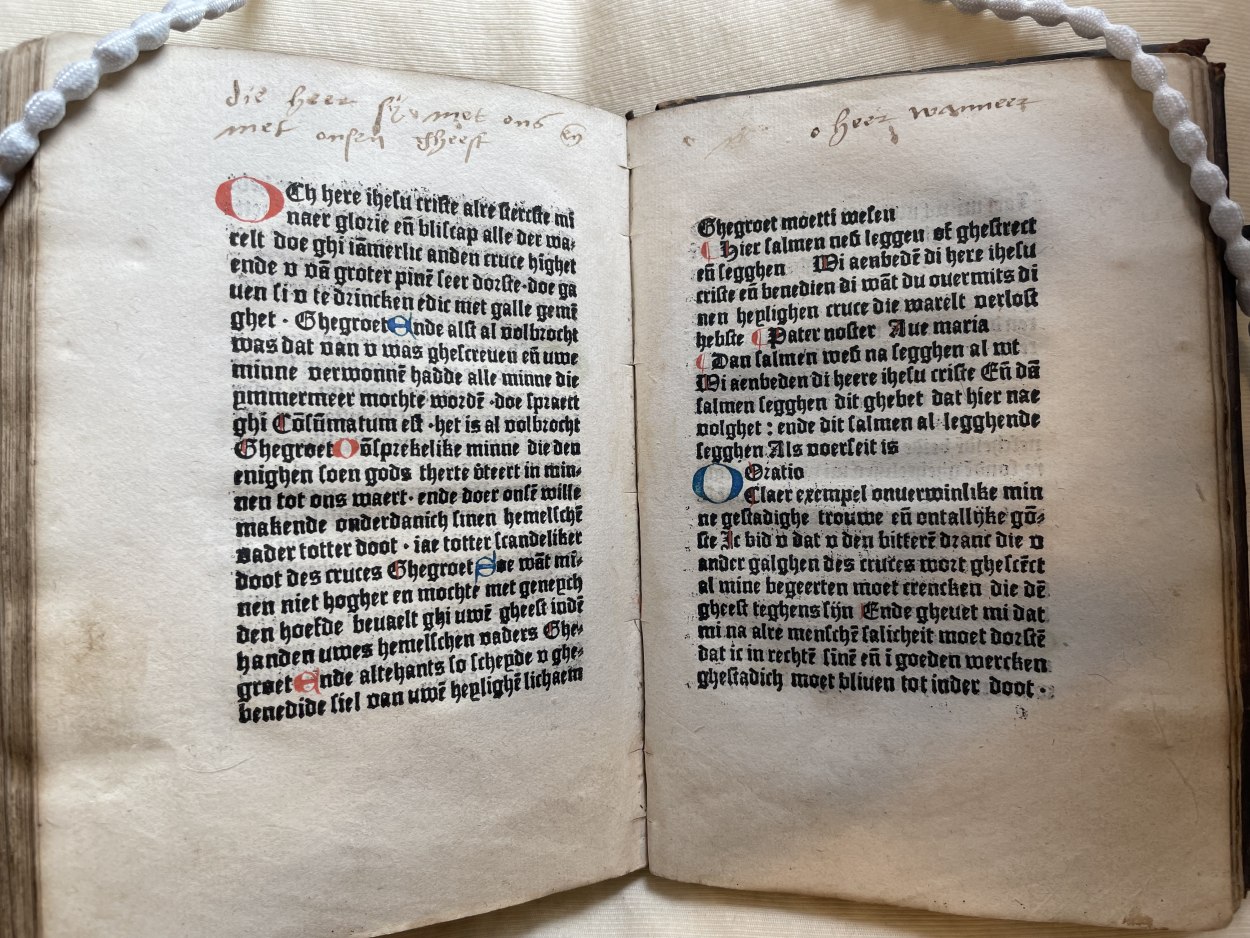 die heer sy met ons en
met onsen gheest
OCh here ihesu criste alre stercste mī
naer glorie eñ bliscap alle der wa⸗
relt doe ghi iāmerlic anden cruce highet
ende v vā groter pinē seer dorste·doe ga
uen si v te drincken edic met galle gemē
ghet · Ghegroet Ende alst al volbrocht
was dat van v was ghescreuen eñ uwe
minne verwonnē hadde alle minne die
ymmermeer mochte wordē ·doe spraect
ghi Cōsūmatum est ·het is al volbrocht
Ghegroet Oōsprekelike minne die den
enighen soen gods therte ōteert in min⸗
nen tot ons waert· ende doer onsē wille
makende onderdanich sinen hemelschē
vader totter doot · iae totter scandeliker
doot des cruces Ghegroet Doe wāt mī⸗
nen niet hogher en mochte met geneych
den hoefde beuaelt ghi uwē gheest indē
handen uwes hemelschen vaders Ghe⸗
groet Ende altehants so scheyde v ghe⸗
benedide siel van uwē heylighē lichaem
o heer wanneer
Ghegroet moetti wesen
Hier salmen neō leggen of ghestrect
eñ segghen Wi aenbedē di here ihesu
criste eñ benedien di wāt du ouermits di
nen heylighen cruce die warelt verlost
hebste Pater noster Aue maria
Dan salmen weō na segghen al wt
Wi aenbeden di heere ihesu criste Eñ dā
salmen segghen dit ghebet dat hier nae
volghet : ende dit salmen al legghende
segghen Als voerseit is
Oratio
O Claer exempel onuerwinlike min
ne gestadighe trouwe eñ ontallijke gō⸗
ste Ic bid v dat v den bitterē dranc die v
ander galghen des cruces wort ghescēct
al mine begeerten moet crencken die dē
gheest teghens sijn Ende gheuet mi dat
mi na alre menschē salicheit moet dorstē
dat ic in rechtē sinē eñ ī goeden wercken
ghestadich moet bliuen tot inder doot ·